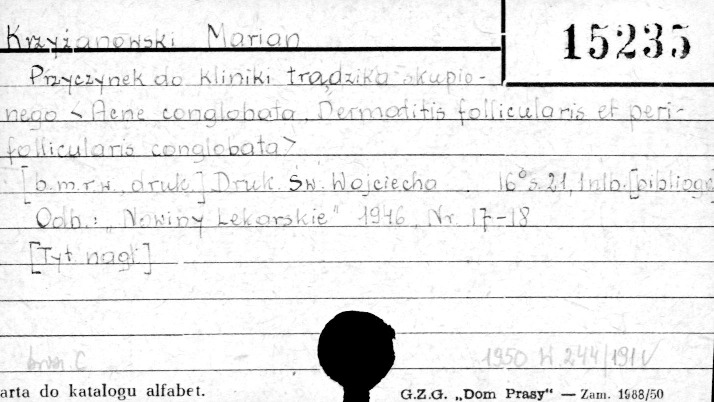 Krzyżanowski Marian
15235
Przyczynek do kliniki trądzika skupio-
nego <Acne conglobata, Dermatitis follicularis et peri-
follicularis conglobata>
[b.m.r.w., druk.] Druk. Św. Wojciecha 16° s. 21, 1 nlb. [bibliogr
Odb.: "Nowiny Lekarskie" 1946, Nr. 17-18
[Tyt. nagł.]
1950 W 244/191
arta do katalogu alfabet.
G.Z.G. „Dom Prasy" — Zam. 1988/50